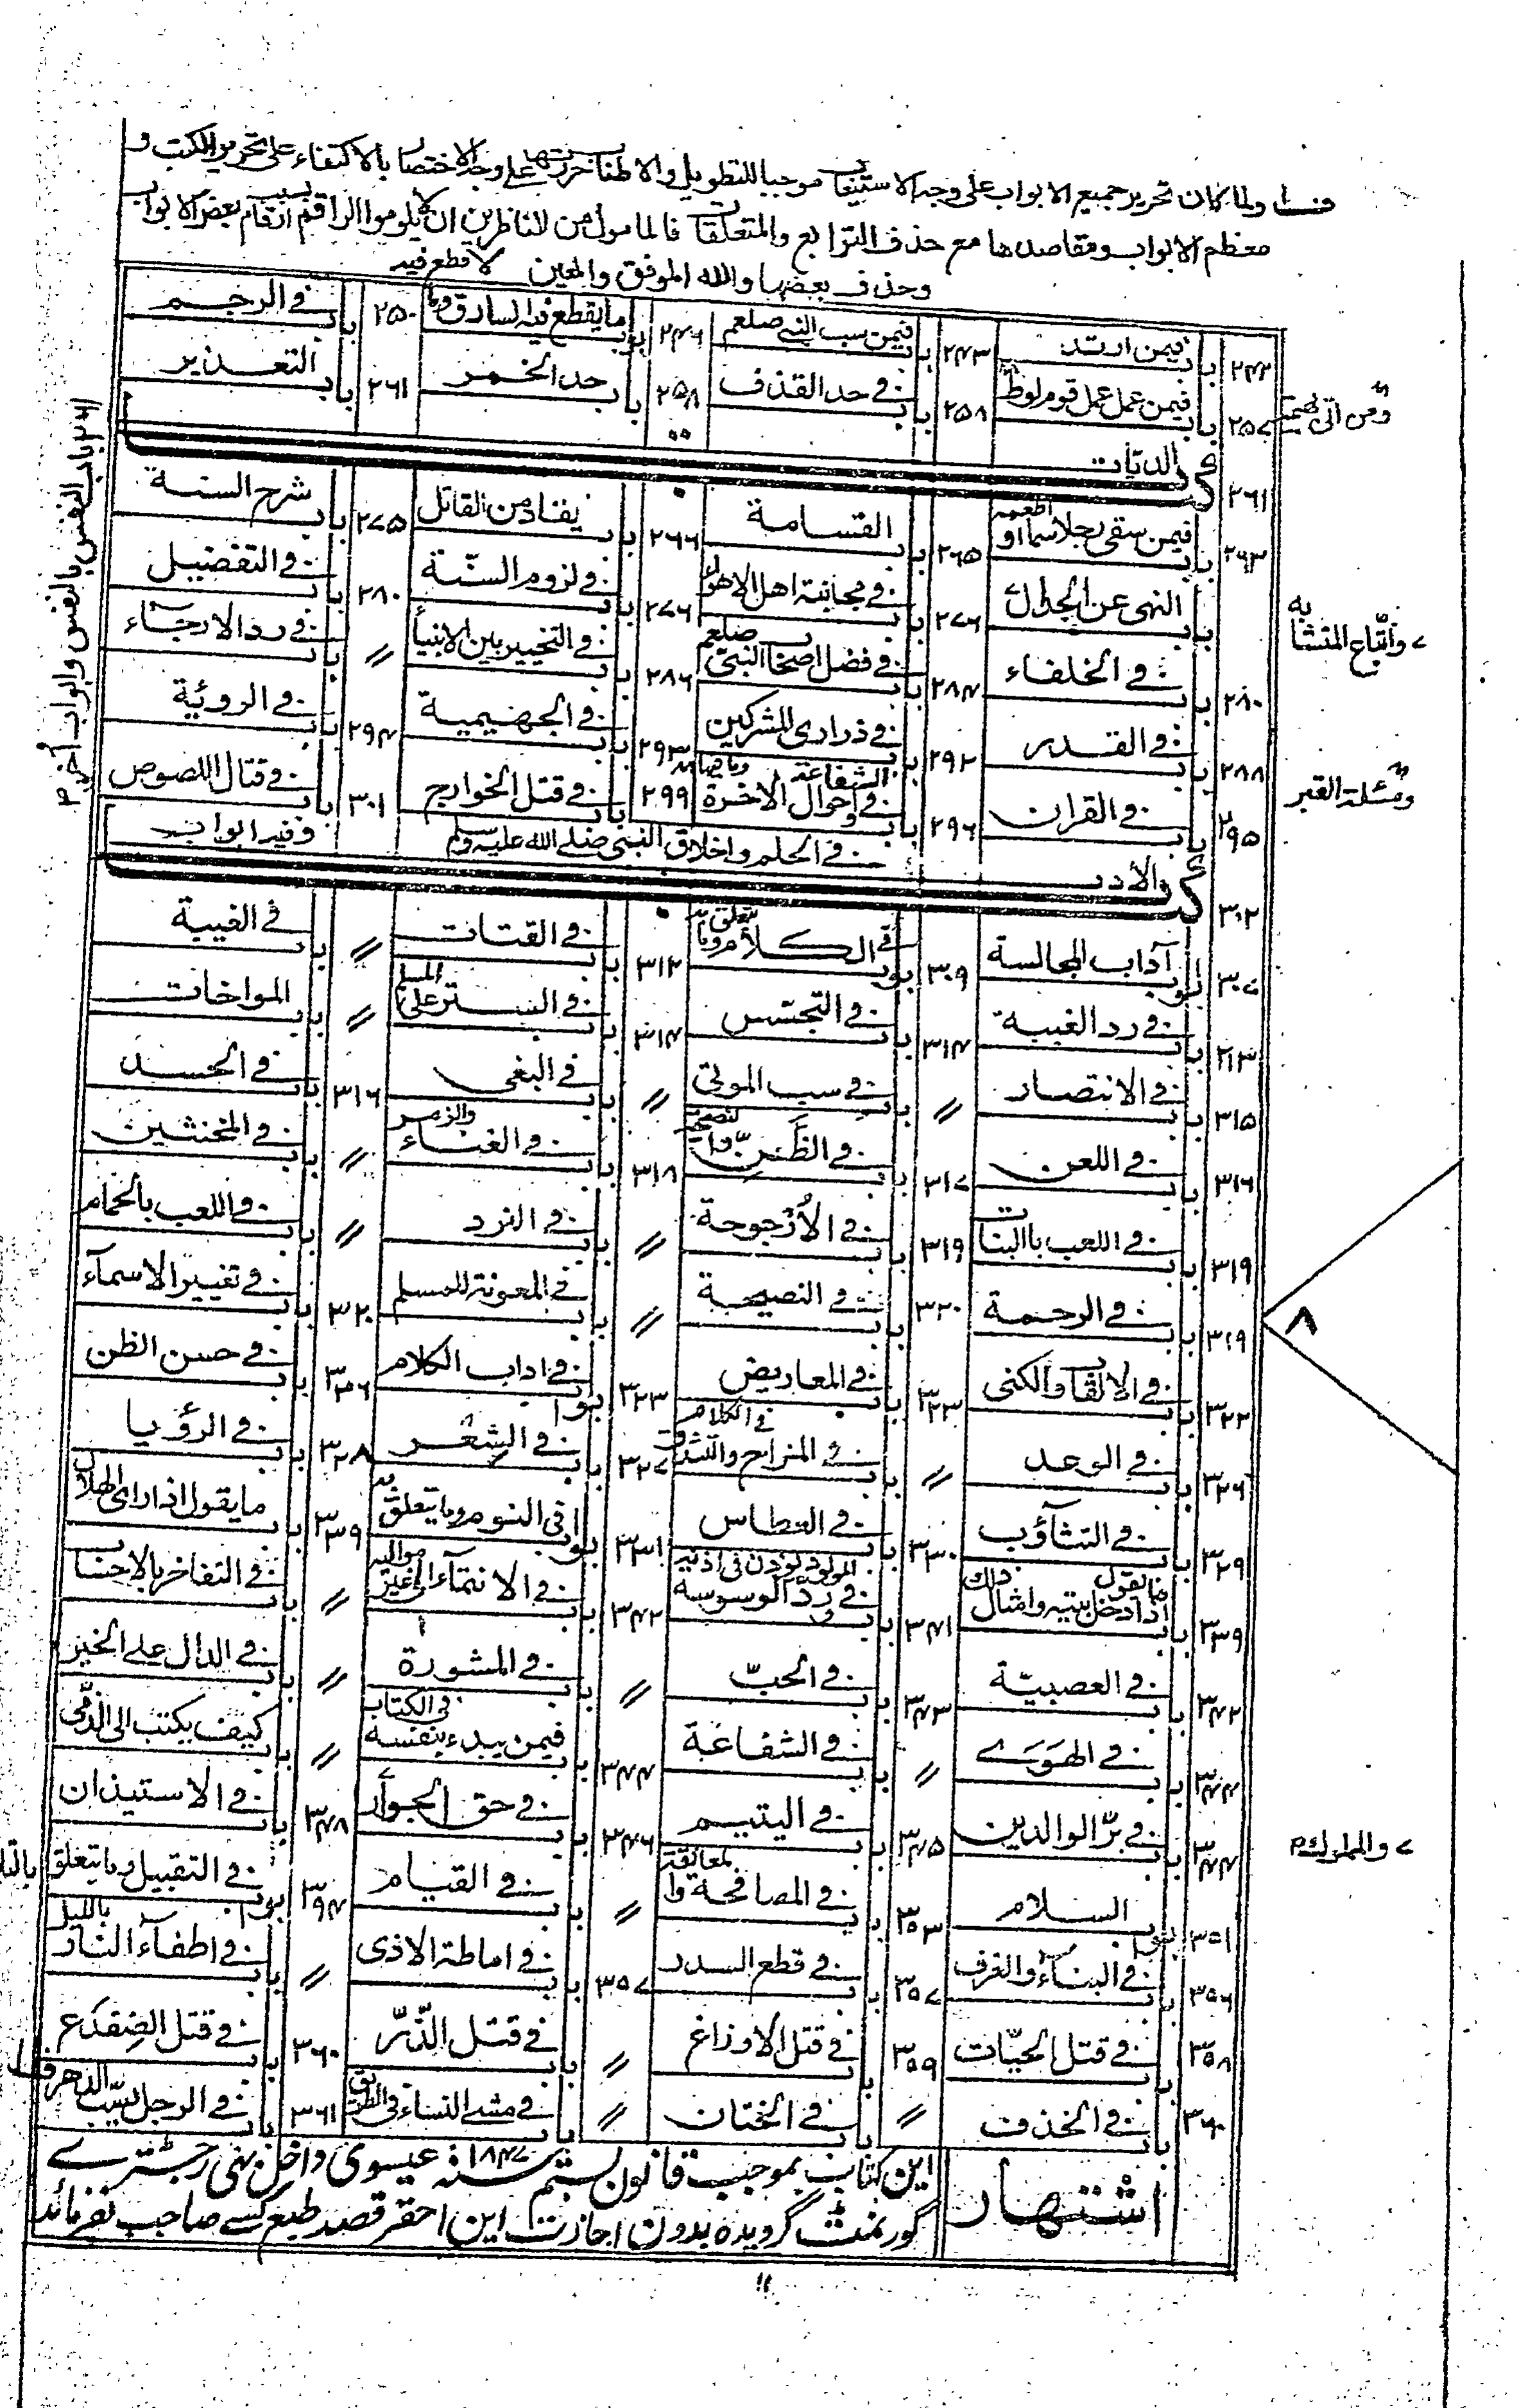 ولما كان تحرير جميع الابواب على وجه الاستيعاب موجبا للتطويل والاطناب حررتها على وجه الاختصار بالاكتفاء على تحرير الكتب و
معظم الابواب ومقاصدها مع حذف التوابع والمتعلقات فالمامول من الناظرين ان لا يلوموا الراقم بعض الابواب
وحذف بعضها والله الموفق والمعين
لا قطع فيه
٢٤٢ باب فيمن ارتد ٢٤٣ باب فيمن سب النبى صلعم ٢٤٦ ابواب ما يقطع فيه السارق وما ٢٥٠ باب فى الرجم
٢٥٧ باب فيمن عمل عمل قوم لوط ٢٥٨ باب فى حد القذف ٢٥٨ باب حد الخمر ٢٦١ باب التعذير
ومن اتى بهيمة
٢٦١ كتاب الديات
٢٦٣ باب فيمن سقى رجلا سما او اطعمه ٢٦٥ باب القسامة ٢٦٦ باب يقاد من القاتل ٢٧٥ باب شرح السنة
باب النهى عن الجدال ٢٧٦ باب فى مجانبة اهل الاهواء ٢٧٦ باب فى لزوم السنة ٢٨٠ باب فى التفضيل
واتباع المتشابه
٢٨٠ باب فى الخلفاء ٢٨٤ باب فى فضل اصحاب النبى صلعم ٢٨٦ باب فى التخيير بين الانبيآ ״ باب فى رد الارجآء
٢٨٨ باب فى القدر ٢٩٢ باب فى ذرارى المشركين ٢٩٣ باب فى الجهيمية ٢٩٤ باب فى الروئية
ومسئلة القبر
٢٩٥ باب فى القران ٢٩٦ باب فى الشفاعة واحوال الاخرة ٢٩٩ باب فى قتل الخوارج ٣٠١ باب فى قتال اللصوص
باب النفس بالنفس وابواب أخر
٣٠٢ كتاب الأدب فى الحلم واخلاق النبى صلے الله عليه وسلم وفيه ابواب
٣٠٧ ابواب آداب المجالسة ٣٠٩ ابواب فى الكلام وما يتعلق به ٣١٢ باب فى القتات ״ باب فى الغيبة
٣١٣ باب فى رد الغيبة ٣١٤ باب فى التجسس ٣١٤ باب فى الستر على المسلم ״ باب المواخات
٣١٥ باب فى الانتصار ״ باب فى سب الموتى ״ باب فى البغى ٣١٦ باب فى الحسد
٣١٦ باب فى اللعن ٣١٧ باب فى الظن والنصيحة ٣١٨ باب فى الغناء والزمر ״ باب فى المخنثين
٣١٩ باب فى اللعب بالبنات ٣١٩ باب فى الأرجوحة ״ باب فى النرد ״ باب فى اللعب بالحمام
٣١٩ باب فى الرحمة ٣٢٠ باب فى النصيحة ״ باب فى المعونة للمسلم ٣٢٠ باب فى تغيير الاسمآء
٨
٣٢٢ باب فى الالقاب والكنى ٣٢٣ باب فى المعاريض ٣٢٣ ابواب فى اداب الكلام ٣٢٦ باب فى حسن الظن
٣٢٦ باب فى الوعد ״ باب فى المزاح والتشدق فى الكلام ٣٢٧ باب فى الشعر ٣٢٨ باب فى الرؤيا
٣٢٩ باب فى التثآؤب ٣٣٠ باب فى العطاس ٣٣١ ابواب فى النوم وما يتعلق به ٣٣٩ باب ما يقول اذا راى الهلال
٣٣٩ باب ما يقول اذا دخل بيته وامثال ذلك ٣٤١ باب المولود يؤذن فى اذنيه وفى رد الوسوسه ٣٤٢ باب فى الانتمآء الى غير مواليه ״ باب فى التفاخر بالاحساب
٣٤٢ باب فى العصبية ٣٤٣ باب فى الحب ״ باب فى المشورة ״ باب فى الدال على الخير
٣٤٤ باب فى الهوے ״ باب فى الشفاعة ٣٤٤ باب فيمن يبدء بنفسه فى الكتاب ״ باب كيف يكتب الى الذمى
٣٤٤ باب فى بر الوالدين ٣٤٥ باب فى اليتيم ٣٤٦ باب فى حق الجوار ٣٤٨ باب فى الاستيذان
والمملوك
٣٥١ ابواب السلام ٣٥٣ باب فى المصافحة والمعانقة ״ باب فى القيام ابواب فى التقبيل وما يتعلق
٣٥٦ باب فى البنآء والغرف ٣٥٧ باب فى قطع السدر ٣٥٧ باب فى اماطة الاذى ״ باب فى اطفآء النار بالليل
٣٥٨ باب فى قتل الحيات ٣٥٩ باب فى قتل الاوزاغ ״ باب فى قتل الذر ٣٦٠ باب فى قتل الضفدع
٣٦٠ باب فى الخذف ״ باب فى الختان ״ باب فى مشے النساء فى الطريق ٣٦١ باب فى الرجل يسب الدهر
اشتهار
اين كتاب بموجب قانون بستم سنه ١٨٤٧ عيسوى داخل بهى رجسٹرے
گورنمنٹ گرويده بدون اجازت اين احقر قصد طبع كسے صاحب نفرمائد